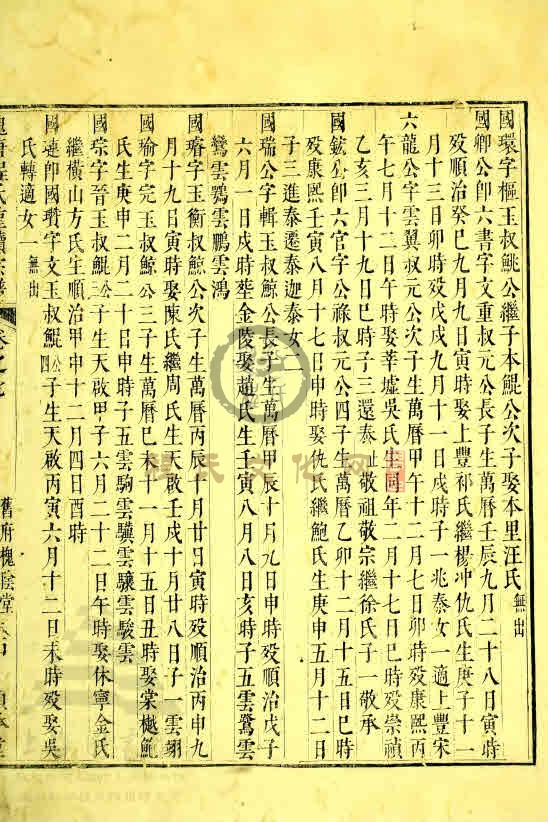 國環字樞玉叔鮡公繼子本鯤公次子娶本里汪氏無出
國卿公卽六書字文重叔元公長子生萬曆壬辰九月二十八日寅時
歿順治癸巳九月九日寅時娶上豐祁氏繼楊冲仇氏生庚子十一
月十三日卯時歿戊戌九月十一日戌時子一兆泰女一適上豐宋
六龍公字雲翼叔元公次子生萬曆甲午十二月七日卯時歿康熙丙
午七月十二日午時娶莘墟吳氏生同年二月十七日巳時歿崇禎
乙亥三月十九日巳時子三還泰敬祖敬宗繼徐氏子一敬承
國鋐公卽六官字公祿叔元公四子生萬曆乙卯十二月十五日巳時
歿康熙壬寅八月十七日申時娶仇氏繼鮑氏生庚申五月十二日
子三進泰遷泰迦泰女二
國瑞公字輯玉叔鯨公長子生萬曆甲辰十月九日申時歿順治戊子
六月一日戌時葬金陵娶趙氏生壬寅八月八日亥時子五雲鷟雲
鸞雲鶚雲鵬雲鴻
國璿字玉衡叔鯨公次子生萬曆丙辰十月廿日寅時歿順治丙申九
月十九日寅時娶陳氏繼周氏生天啟壬戌十月廿八日子一雲翃
國瑜字完玉叔鯨公三子生萬曆巳十一月十五日丑時娶棠樾鮑
氏生庚申二月二十日申時子五雲駒雲驥雲驤雲駿雲
國琮字晉玉叔鯤公三子生天啟甲子六月二十二日午時娶休寧金氏
繼橫山方氏生順治甲申十二月四日酉時
國璉卽國瓚字文玉叔鯤公四子生天啟丙寅六月十二日未時歿娶吳
氏轉適女一無出
舊府槐陰堂